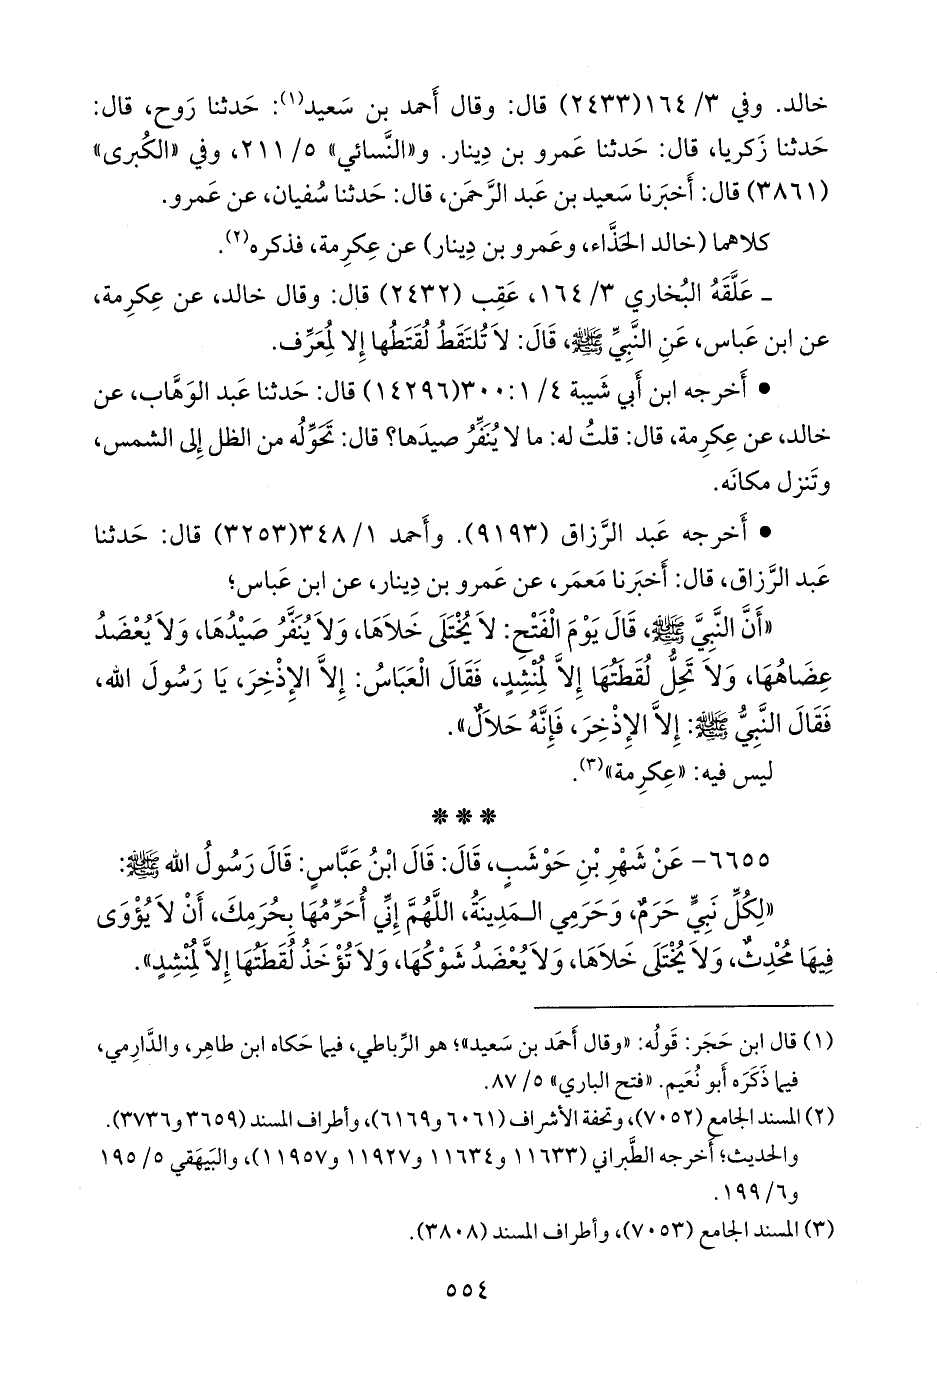 خالد. وفي ٣/ ١٦٤(٢٤٣٣) قال: وقال أَحمد بن سَعيد(١): حَدثنا رَوح، قال:
حَدثنا زَكريا، قال: حَدثنا عَمرو بن دِينار. و«النَّسائي» ٥/ ٢١١، وفي «الكُبرى»
(٣٨٦١) قال: أَخبَرنا سَعيد بن عَبد الرَّحمَن، قال: حَدثنا سُفيان، عن عَمرو.
كلاهما (خالد الحَذَّاء، وعَمرو بن دِينار) عن عِكرِمة، فذكره(٢).
ـ عَلَّقَهُ البُخاري ٣/ ١٦٤، عَقِب (٢٤٣٢) قال: وقال خالد، عن عِكرِمة،
عن ابن عَباس، عَنِ النَّبِيِّ ﷺ، قَالَ: لاَ تُلتَقَطُ لُقَتَطُها إِلا لِمُعَرِّف.
• أَخرجه ابن أَبي شَيبة ٤/ ١: ٣٠٠(١٤٢٩٦) قال: حَدثنا عَبد الوَهَّاب، عن
خالد، عن عِكرِمة، قال: قلتُ له: ما لا يُنَفَّرُ صيدَها؟ قال: تَحَوِّلُه من الظل إِلى الشمس،
وتَنزل مكانَه.
• أَخرجه عَبد الرَّزاق (٩١٩٣). وأَحمد ١/ ٣٤٨(٣٢٥٣) قال: حَدثنا
عَبد الرَّزاق، قال: أَخبَرنا مَعمَر، عن عَمرو بن دِينار، عن ابن عَباس؛
«أَنَّ النَّبِيَّ ﷺ، قَالَ يَوْمَ الْفَتْحِ: لاَ يُخْتَلَى خَلاَهَا، وَلاَ يُنَفَّرُ صَيْدُهَا، وَلاَ يُعْضَدُ
عِضَاهُهَا، وَلاَ تَحِلُّ لُقَطَتُهَا إِلاَّ لِمُنْشِدٍ، فَقَالَ الْعَبَّاسُ: إِلاَّ الإِذْخِرَ، يَا رَسُولَ الله،
فَقَالَ النَّبِيُّ ﷺ: إِلاَّ الإِذْخِرَ، فَإِنَّهُ حَلاَلٌ».
ليس فيه: «عِكرِمة»(٣).
***
٦٦٥٥- عَنْ شَهْرِ بْنِ حَوْشَبٍ، قَالَ: قَالَ ابْنُ عَبَّاسٍ: قَالَ رَسُولُ الله ﷺ:
«لِكُلِّ نَبِيٍّ حَرَمٌ، وَحَرَمِي الـمَدِينَةُ، اللَّهُمَّ إِنِّي أُحَرِّمُهَا بِحُرَمِكَ، أَنْ لاَ يُؤْوَى
فِيهَا مُحْدِثٌ، وَلاَ يُخْتَلَى خَلاَهَا، وَلاَ يُعْضَدُ شَوْكُهَا، وَلاَ تُؤْخَذُ لُقَطَتُهَا إِلاَّ لِمُنْشِدٍ».
(١) قال ابن حَجَر: قَولُه: «وقال أَحمَد بن سَعيد»؛ هو الرِّباطي، فيما حَكاه ابن طاهِر، والدَّارِمي،
فيما ذَكَرَه أَبو نُعَيم. «فتح الباري» ٥/ ٨٧.
(٢) المسند الجامع (٧٠٥٢)، وتحفة الأشراف (٦٠٦١ و٦١٦٩)، وأطراف المسند (٣٦٥٩ و٣٧٣٦).
والحديث؛ أخرجه الطَّبراني (١١٦٣٣ و١١٦٣٤ و١١٩٢٧ و١١٩٥٧)، والبَيهَقي ٥/ ١٩٥
و٦/ ١٩٩.
(٣) المسند الجامع (٧٠٥٣)، وأطراف المسند (٣٨٠٨).
٥٥٤